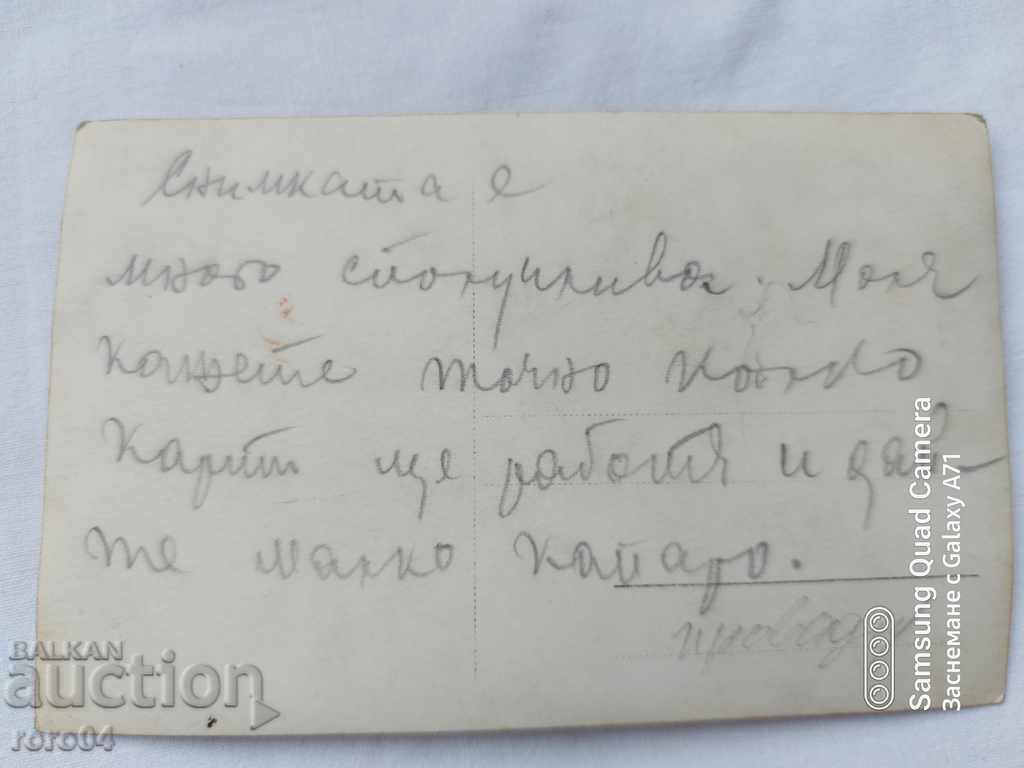 Снимката е
много сполучлива. Моля
кажете точно колко
карти ще работя и дай-
те малко капаро.
BALKAN
auction
roro04
Samsung Quad Camera
Заснемане с Galaxy A71